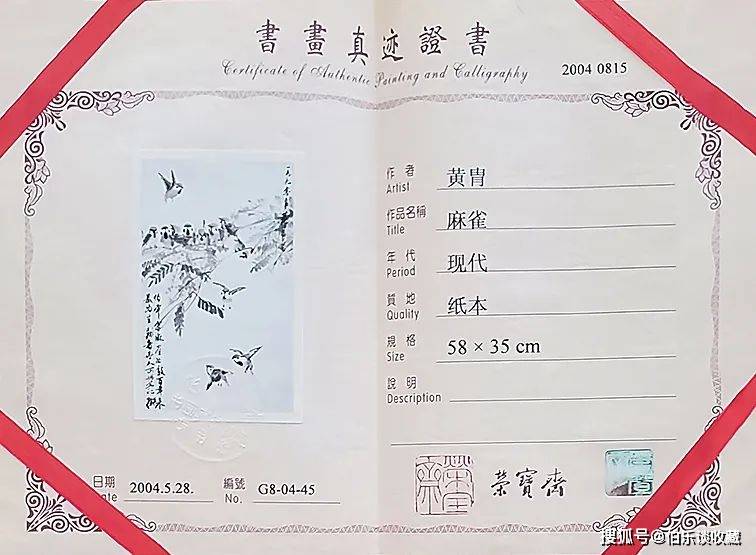 書畫真迹證書
Certificate of Authentic Painting and Calligraphy
2004 0815
作者 黄胄
Artist
作品名稱 麻雀
Title
年代 现代
Period
質地 纸本
Quality
規格 58 × 35 cm
Size
說明
Description
日期 2004.5.28.
Date
編號 G8-04-45
No.
榮寶齋
搜狐号@伯乐谈收藏